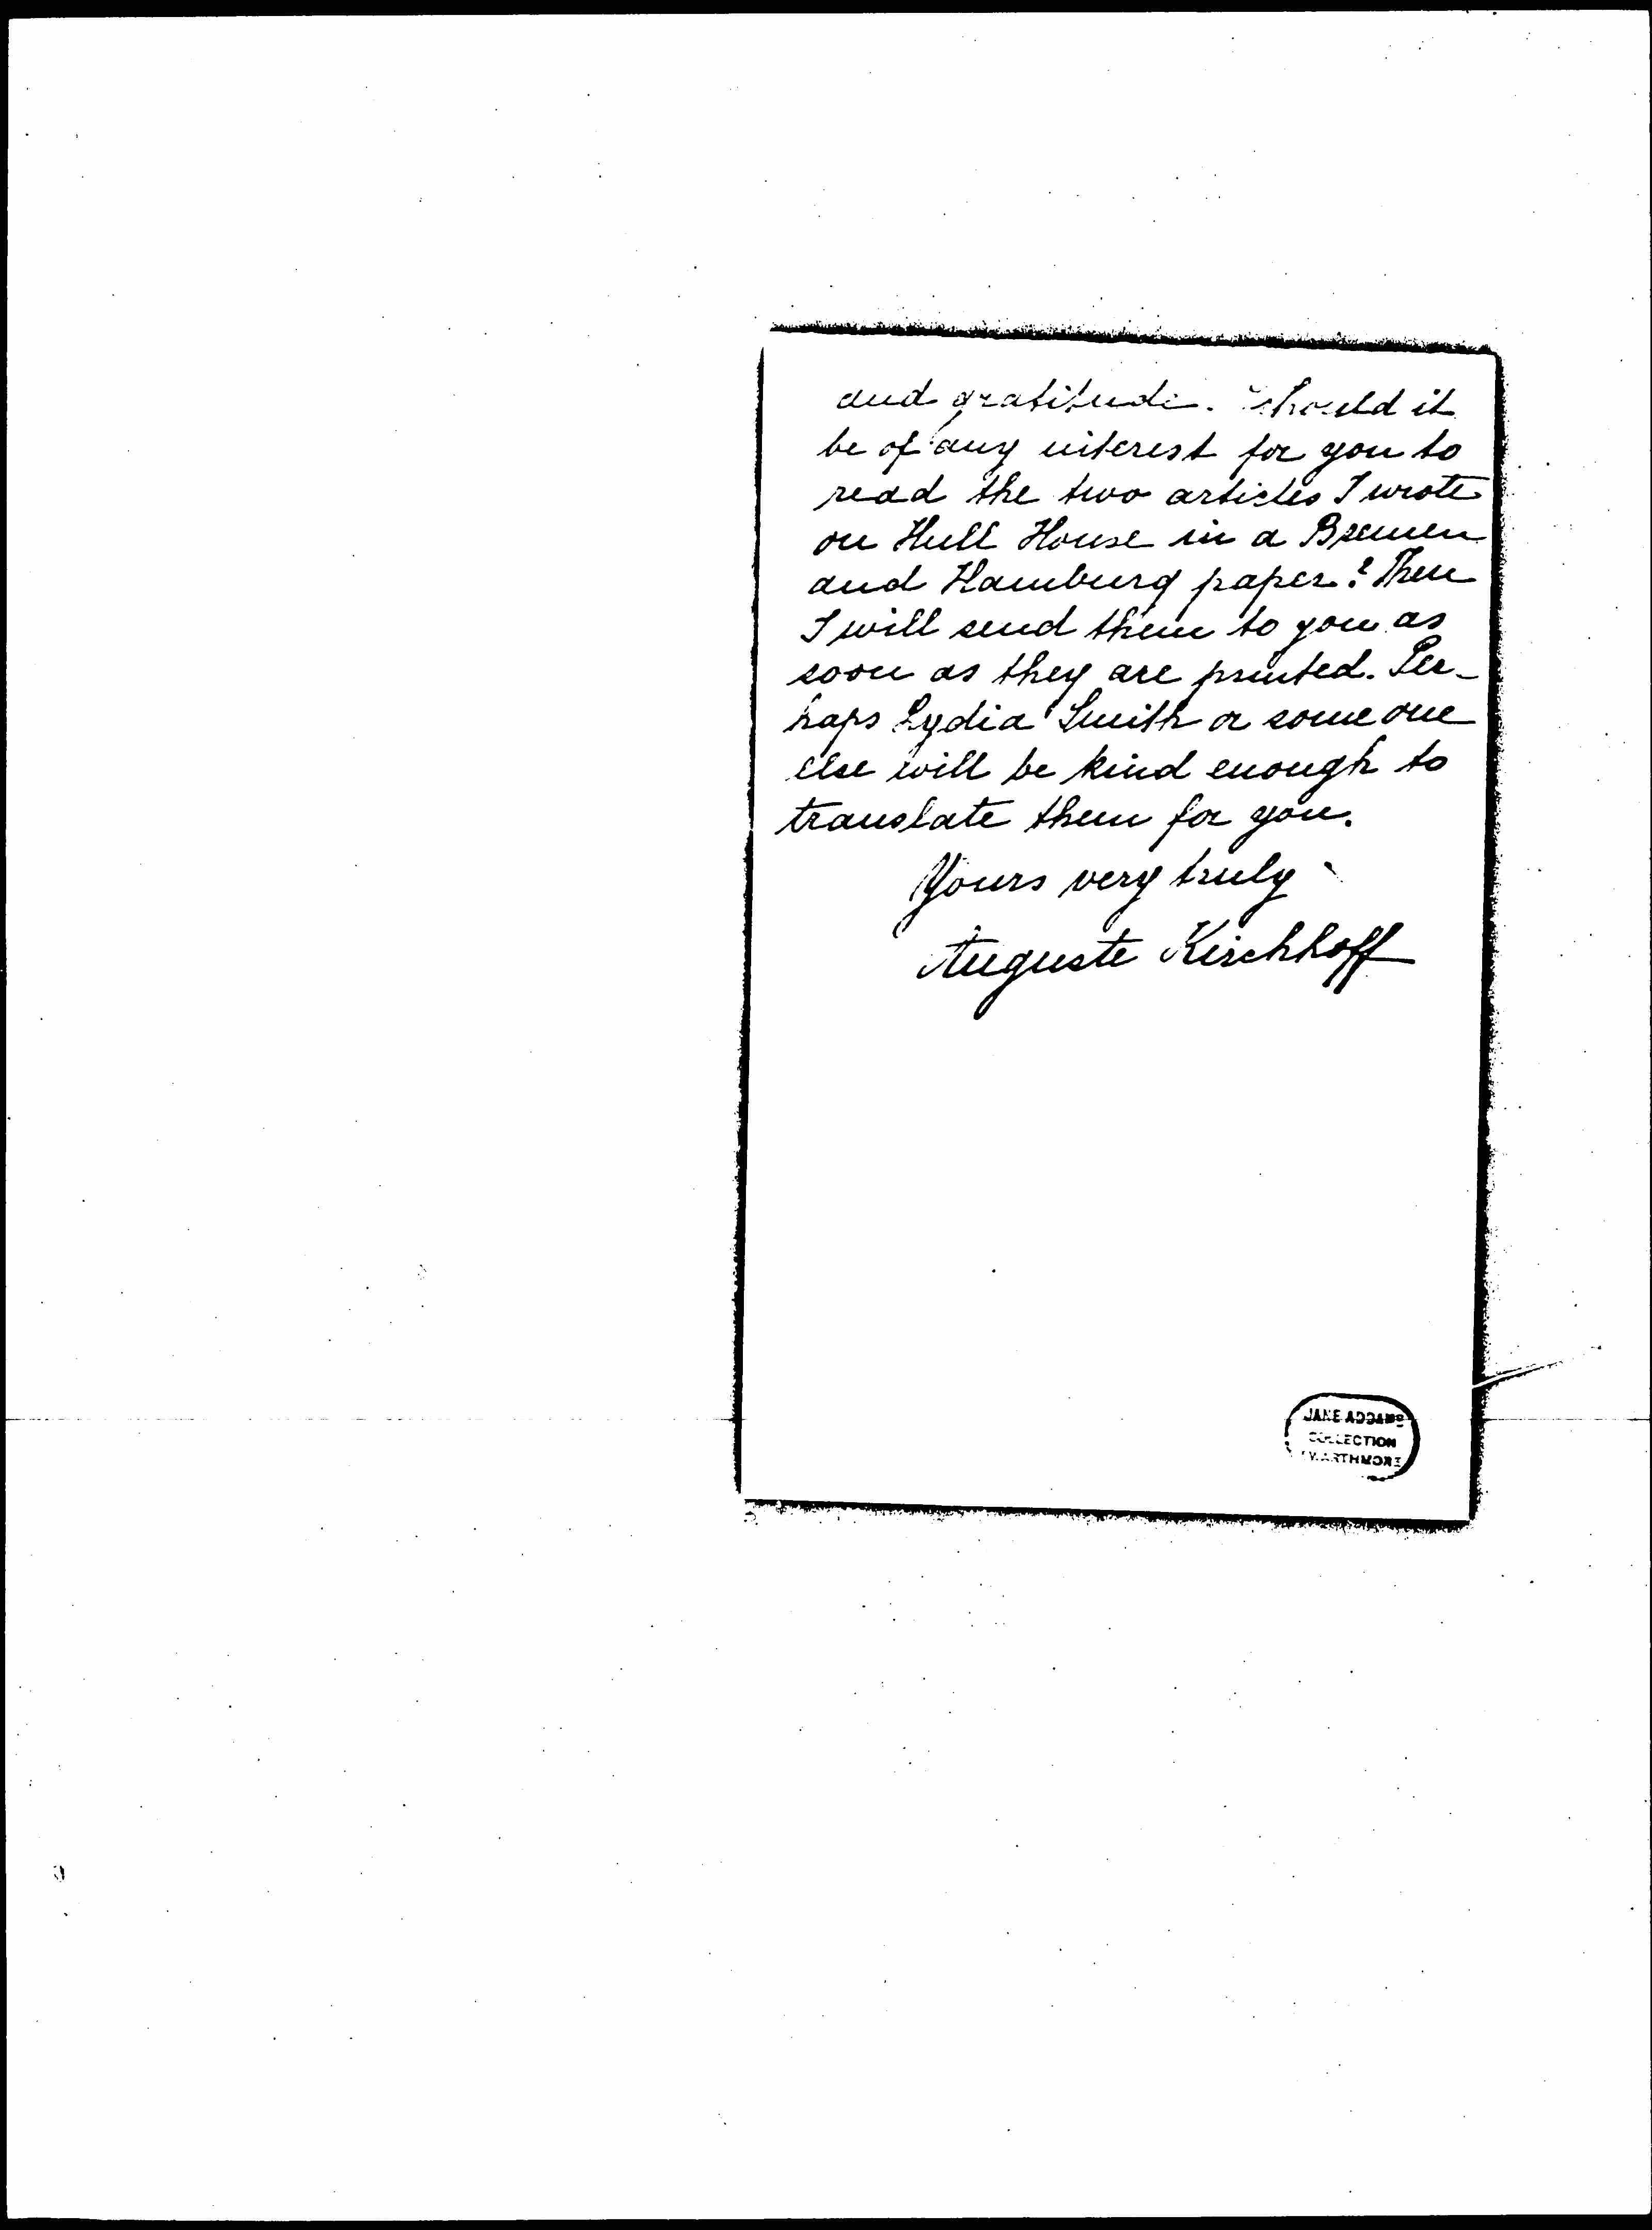 and gratitude. Should it
be of any interest for you to
read the two articles I wrote
on Hull House in a Bremen
and Hamburg paper? Then
I will send them to you as
soon as they are printed. Per-
haps Lydia Smith or some one
else will be kind enough to
translate them for you.
Yours very truly
Auguste Kirchhoff
JANE ADDAMS
COLLECTION
SWARTHMORE